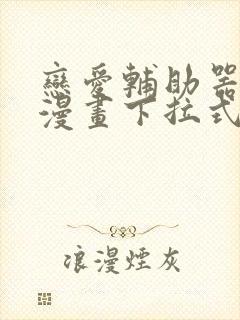 戀愛輔助器
漫畫下拉式
浪漫煙灰